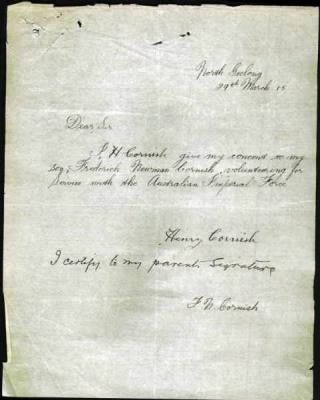 North Geelong
29th March 15
Dear Sir
I, H Cornish give my concent to my
son, Frederick Newman Cornish, volunteering for
Service with the Australian Imperial Force
Henry Cornish
I certify to my parents Signature
F N Cornish